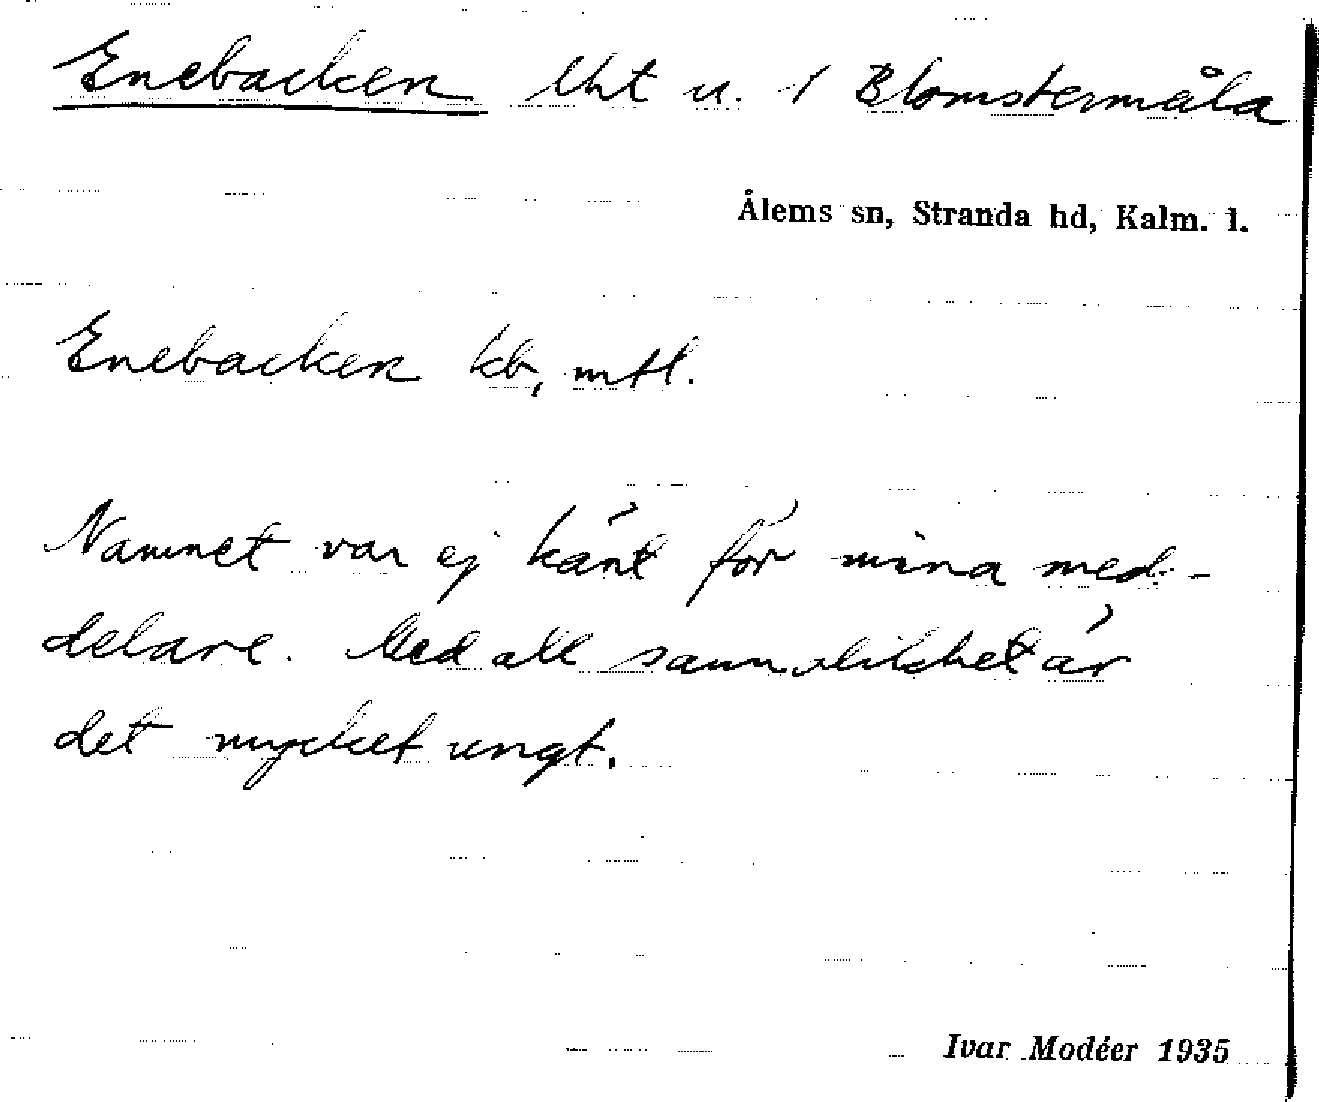 Enebacken lht u. 1 Blomstermåla
Ålems sn, Stranda hd, Kalm. l.
Enebacken kb, mtl.
Namnet var ej känt för mina med-
delare. Med all sannolikhet är
det mycket ungt.
Ivar Modéer 1935